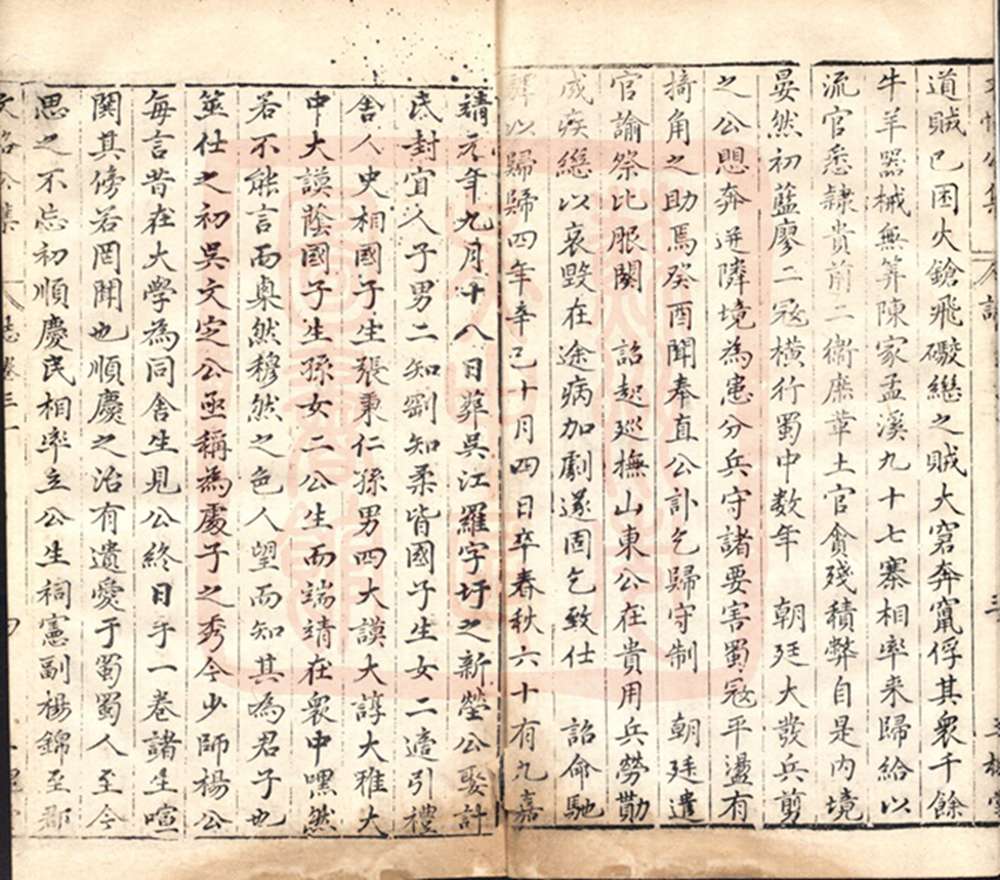 道賊已困火鎗飛礮繼之賊大窘奔竄俘其衆千餘
牛羊器械無筭陳家孟溪九十七寨相率来歸給以
流官悉隸貴前二衞庶革土官貪殘積弊自是内境
晏然初藍廖二冦横行蜀中数年　朝廷大發兵剪
之公思奔迸隣境為患分兵守諸要害蜀冦平盪有
掎角之助焉癸酉聞奉直公訃乞歸守制　朝廷遣
官諭祭比服闋　詔起廵撫山東公在貴用兵勞勩
成疾繼以哀毁在途病加劇遂固乞致仕　詔命馳
驛以歸歸四年辛巳十月四日卒春秋六十有九嘉
靖元年九月十八日葬吳江羅字圩之新塋公娶計
氏封宜人子男二知劉知柔皆國子生女二適引禮
舎人史相國子生張秉仁孫男四大謨大諄大雅大
中大謨蔭國子生孫女二公生而端靖在衆中嘿然
若不能言而㮚然穆然之色人望而知其為君子也
筮仕之初吳文定公亟稱為處子之秀今少師楊公
每言昔在大學為同舎生見公終日手一巻諸生喧
閧其傍若罔聞也順慶之治有遺愛于蜀蜀人至今
思之不忘初順慶民相率立公生祠憲副楊錦至郡